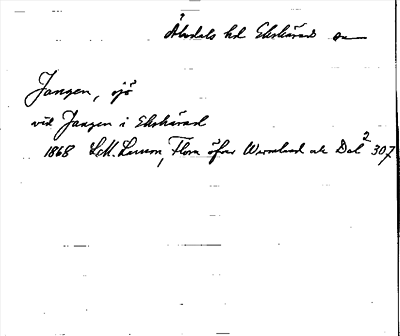 Älvdals hd Ekshärad sn
Jangen, sjö
vid Jangen i Ekshärad
1868 L.M. Larsson, Flora öfver Wermland och Dal² 307